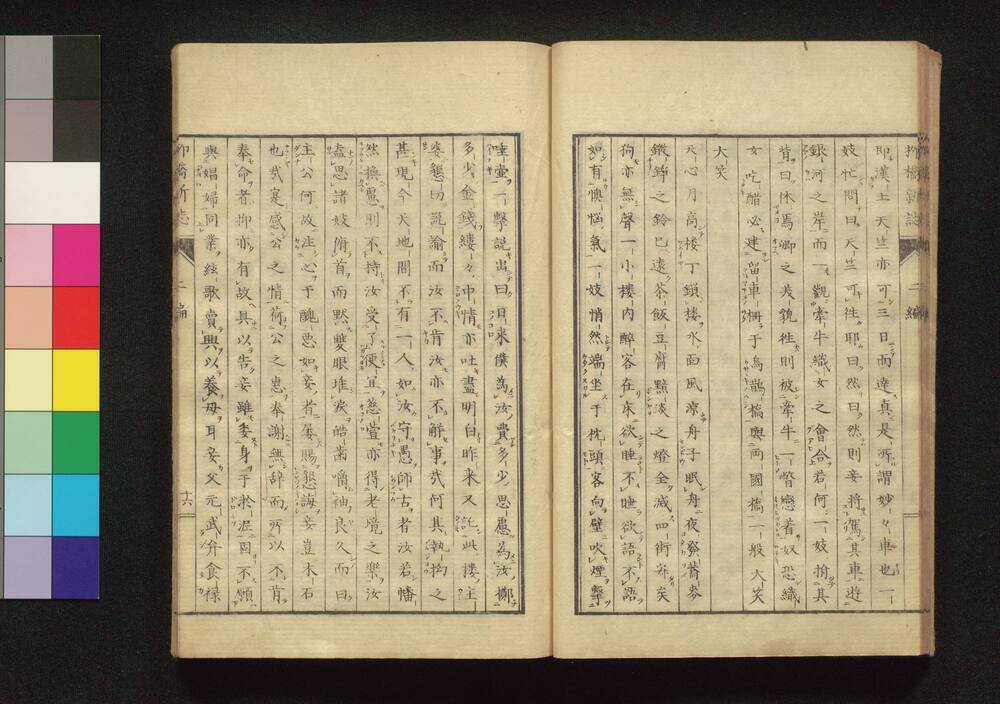 柳橋新誌 二編
即漢土天竺亦可三日而達眞是所謂妙々車也一
妓忙問曰天竺可徃耶曰然曰然則妾將駕其車遊
銀河之岸而一觀牽牛織女之會合若何一妓拊其
背曰休焉卿之美貌徃則被牽牛一瞥戀着奴恐織
女吃醋必建留車柵于烏鵲橋與両國橋一般大笑
大笑
天心月高樓丁鎖樓水面風凉舟子眠舟夜發蕎麥
鐵錚之鈴已遠茶飯豆腐黯淡之燈全滅四街寂矣
狗亦無聲一小樓内醉客在床欲睡不睡欲語不語
如有懊惱氣一妓悄然端坐于枕頭客向壁吹煙擊
唾壷一擊説出曰日来僕為汝費多少思慮為汝擲
多少金錢縷々中情亦吐盡明白昨来又託此樓主
婆懇曰説諭而汝不肯汝亦不解事哉何其執拘之
甚現今天地間不有一人如汝守愚師古者汝若幡
然換慮則不特汝受了便宜慈萱亦得老境之樂汝
盍思諸妓俯首而默雙眼堆淚皓歯嚼袖良久而曰
主公何故注心于醜惡如妾者屡賜懇誨妾豈木石
也哉寔感公之情荷公之惠奉謝無辞而所以不肯
奉命者抑亦有故具以告妾雖委身于於泥固不願
與娼婦同業絃歌賣興以養母耳妾父元武弁食禄
柳橋新志 二編 十六